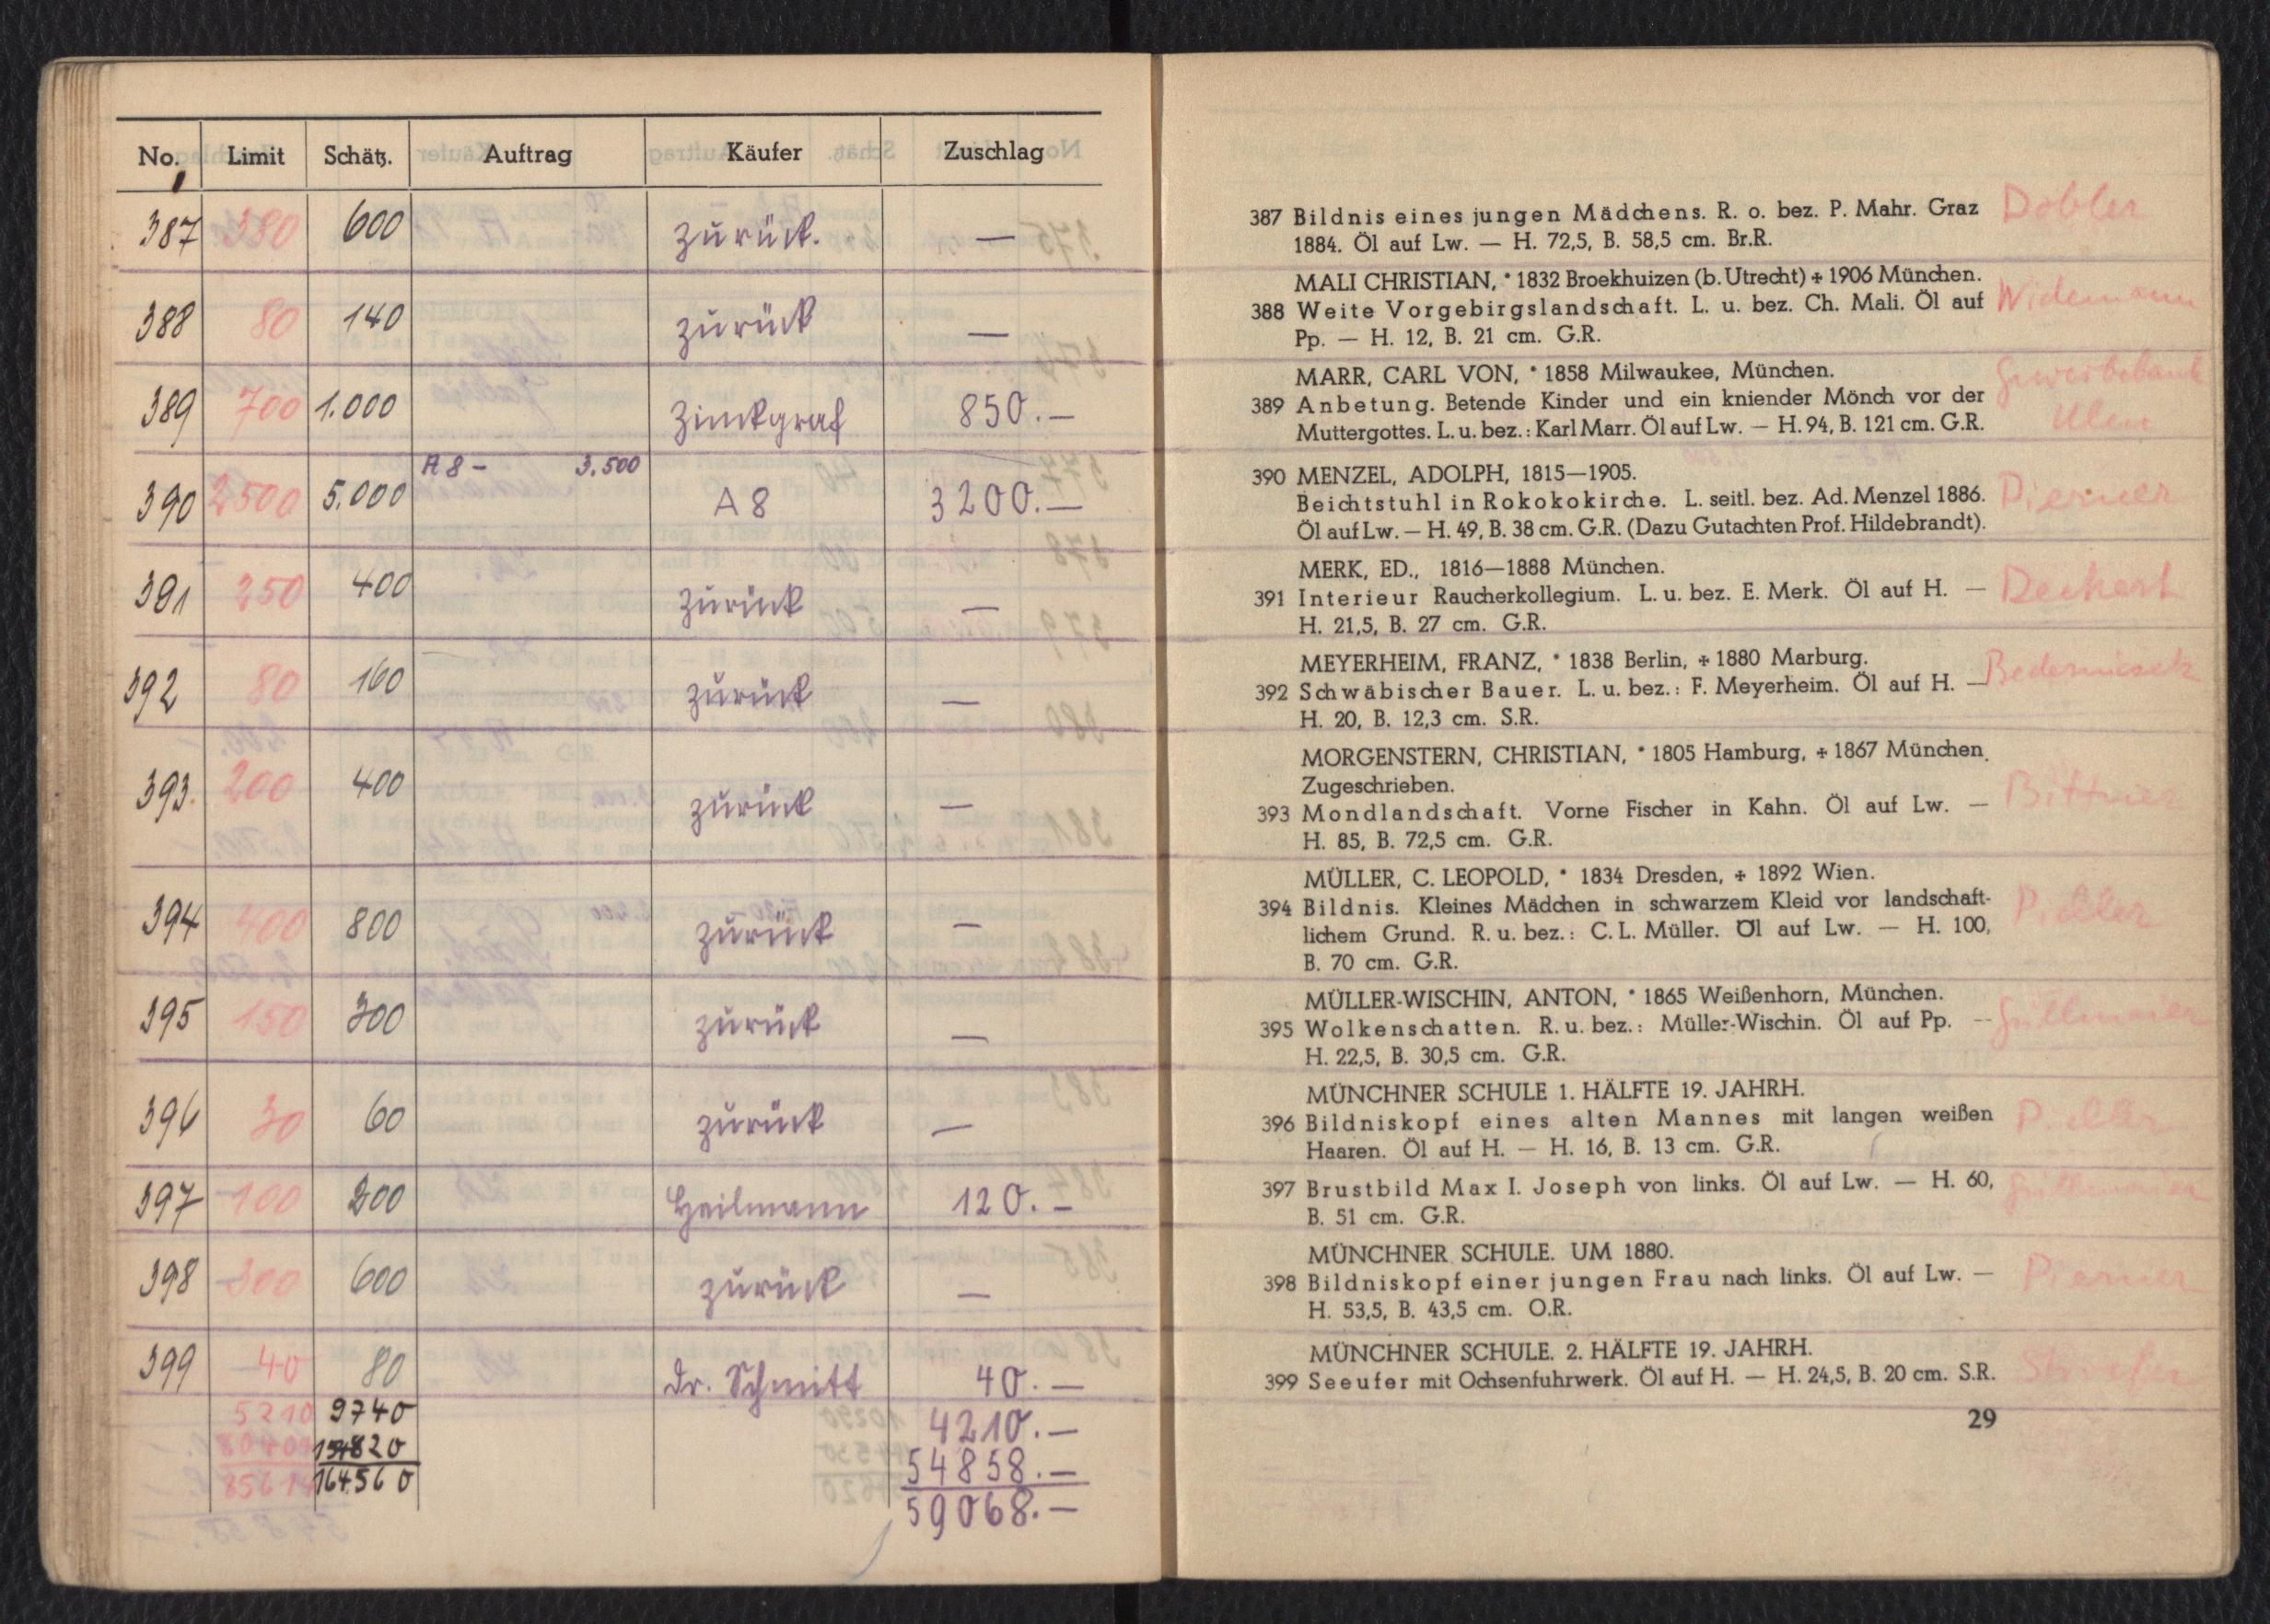 No. Limit Schätz. Auftrag Käufer Zuschlag
387 380 600 zurück. —
388 80 140 zurück —
389 700 1.000 Zinkgraf 850.—
A 8 – 3.500
390 2500 5.000 A 8 3200.—
391 250 400 zurück —
392 80 160 zurück —
393 200 400 zurück —
394 400 800 zurück —
395 150 300 zurück —
396 30 60 zurück —
397 100 200 Heilmann 120.—
398 300 600 zurück —
399 40 80 Dr. Schmitt 40.—
5210 9740 4210.—
154820 54858.—
164560 59068.—
387 Bildnis eines jungen Mädchens. R. o. bez. P. Mahr. Graz Dobler
1884. Öl auf Lw. — H. 72,5, B. 58,5 cm. Br.R.
MALI CHRISTIAN, * 1832 Broekhuizen (b. Utrecht) + 1906 München.
388 Weite Vorgebirgslandschaft. L. u. bez. Ch. Mali. Öl auf Widemann
Pp. — H. 12, B. 21 cm. G.R.
MARR, CARL VON, * 1858 Milwaukee, München. Gewerbebank
389 Anbetung. Betende Kinder und ein kniender Mönch vor der Ulm
Muttergottes. L. u. bez.: Karl Marr. Öl auf Lw. — H. 94, B. 121 cm. G.R.
390 MENZEL, ADOLPH, 1815—1905.
Beichtstuhl in Rokokokirche. L. seitl. bez. Ad. Menzel 1886. Pierner
Öl auf Lw. — H. 49, B. 38 cm. G.R. (Dazu Gutachten Prof. Hildebrandt).
MERK, ED., 1816—1888 München.
391 Interieur Raucherkollegium. L. u. bez. E. Merk. Öl auf H. — Dechert
H. 21,5, B. 27 cm. G.R.
MEYERHEIM, FRANZ, * 1838 Berlin, + 1880 Marburg.
392 Schwäbischer Bauer. L. u. bez.: F. Meyerheim. Öl auf H. —
H. 20, B. 12,3 cm. S.R.
MORGENSTERN, CHRISTIAN, * 1805 Hamburg, + 1867 München.
Zugeschrieben.
393 Mondlandschaft. Vorne Fischer in Kahn. Öl auf Lw. — Bittner
H. 85, B. 72,5 cm. G.R.
MÜLLER, C. LEOPOLD, * 1834 Dresden, + 1892 Wien.
394 Bildnis. Kleines Mädchen in schwarzem Kleid vor landschaft-
lichem Grund. R. u. bez.: C. L. Müller. Öl auf Lw. — H. 100,
B. 70 cm. G.R.
MÜLLER-WISCHIN, ANTON, * 1865 Weißenhorn, München.
395 Wolkenschatten. R. u. bez.: Müller-Wischin. Öl auf Pp. —
H. 22,5, B. 30,5 cm. G.R.
MÜNCHNER SCHULE 1. HÄLFTE 19. JAHRH.
396 Bildniskopf eines alten Mannes mit langen weißen
Haaren. Öl auf H. — H. 16, B. 13 cm. G.R.
397 Brustbild Max I. Joseph von links. Öl auf Lw. — H. 60,
B. 51 cm. G.R.
MÜNCHNER SCHULE. UM 1880.
398 Bildniskopf einer jungen Frau nach links. Öl auf Lw. — Pierner
H. 53,5, B. 43,5 cm. O.R.
MÜNCHNER SCHULE. 2. HÄLFTE 19. JAHRH.
399 Seeufer mit Ochsenfuhrwerk. Öl auf H. — H. 24,5, B. 20 cm. S.R.
29